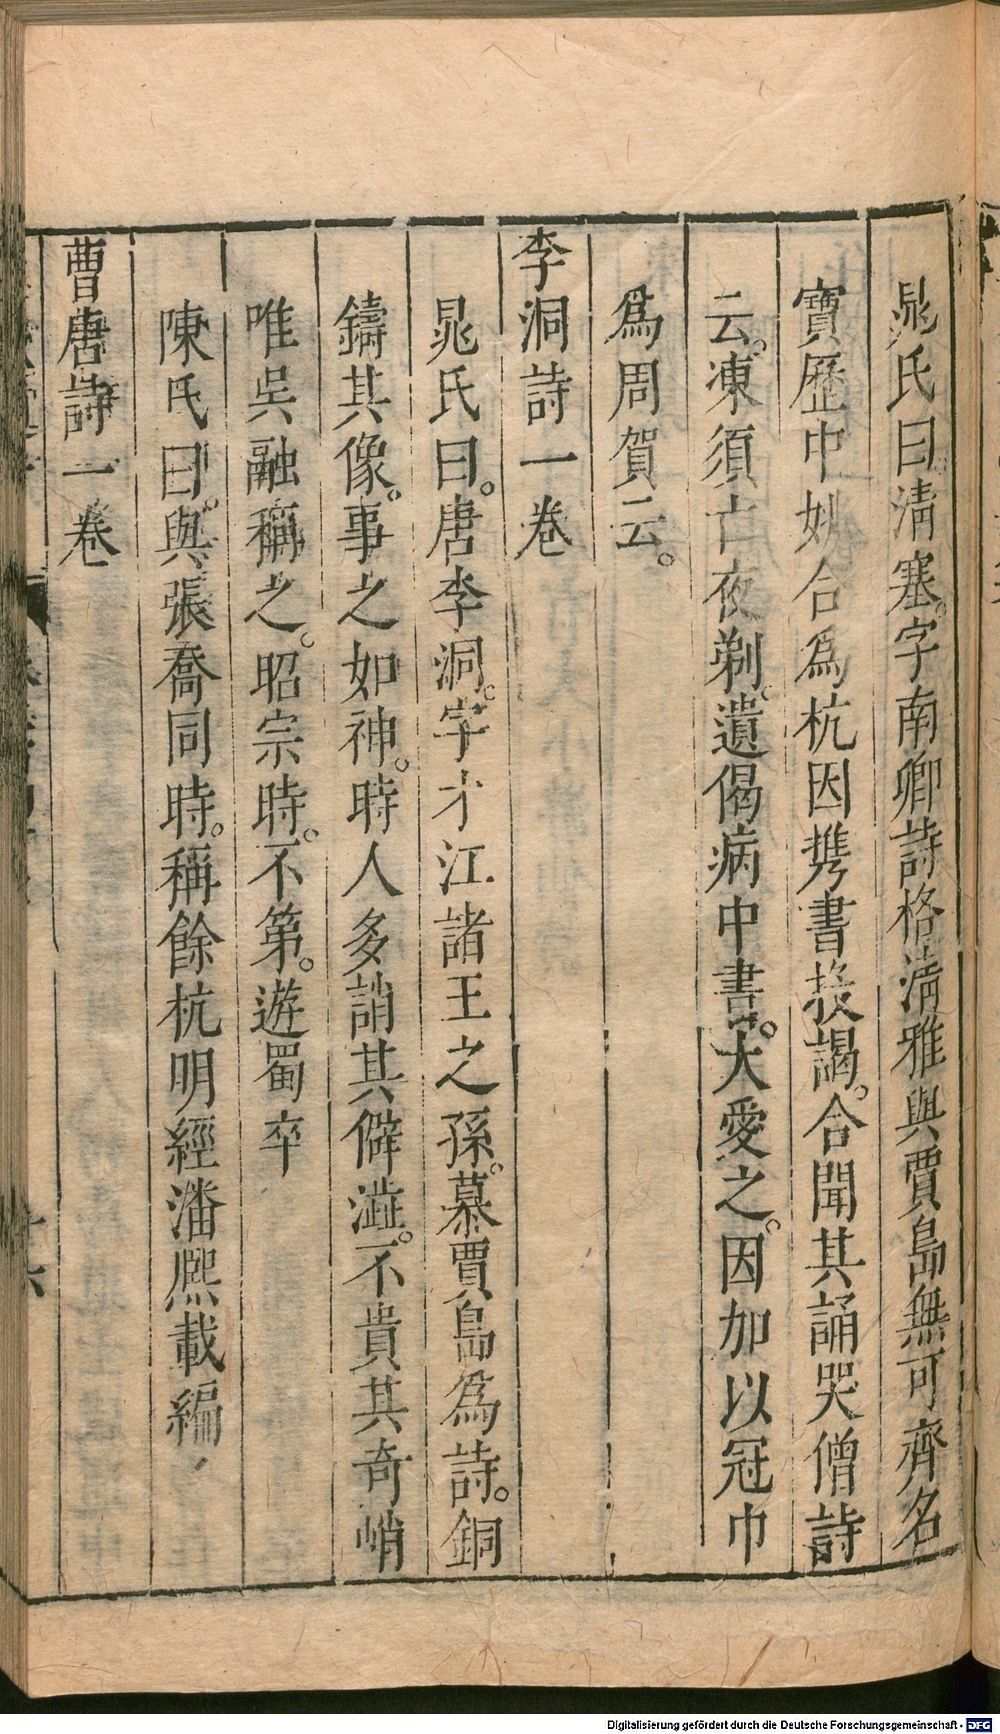 晁氏曰清塞字南卿詩格清雅與賈島無可齊名
寶歷中姚合爲杭因携書投謁。合聞其誦哭僧詩
云。凍須亡夜剃。遺偈病中書。大愛之。因加以冠巾
爲周賀云。
李洞詩一卷
晁氏曰。唐李洞。字才江諸王之孫。慕賈島爲詩。銅
鑄其像。事之如神。時人多誚其僻澁。不貴其奇峭
唯吳融稱之。昭宗時。不第。遊蜀卒
陳氏曰。與張喬同時。稱餘杭明經潘熈載編、
曹唐詩一卷
Digitalisierung gefördert durch die Deutsche Forschungsgemeinschaft - DFG